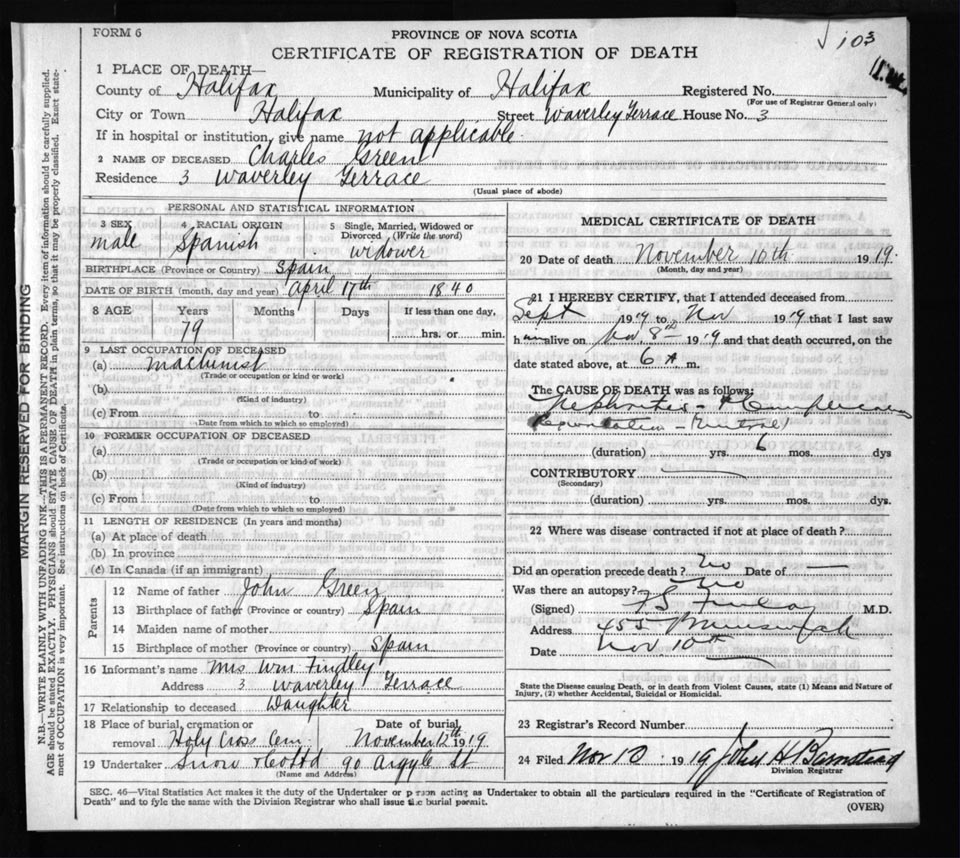 FORM 6
PROVINCE OF NOVA SCOTIA
CERTIFICATE OF REGISTRATION OF DEATH
103
1 PLACE OF DEATH—
County of Halifax Municipality of Halifax Registered No.
(For use of Registrar General only)
City or Town Halifax Street Waverley Terrace House No. 3
If in hospital or institution, give name not applicable
2 NAME OF DECEASED Charles Green
Residence 3 Waverley Terrace
(Usual place of abode)
PERSONAL AND STATISTICAL INFORMATION
3 SEX 4 RACIAL ORIGIN 5 Single, Married, Widowed or
Divorced (Write the word)
male Spanish widower
BIRTHPLACE (Province or Country) Spain
DATE OF BIRTH (month, day and year) April 17th 1840
8 AGE Years Months Days If less than one day,
79 hrs. or min.
9 LAST OCCUPATION OF DECEASED
(a) machinist
(Trade or occupation or kind of work)
(b)
(Kind of industry)
(c) From to
(Date from which to which so employed)
10 FORMER OCCUPATION OF DECEASED
(a)
(Trade or occupation or kind of work)
(b)
(Kind of industry)
(c) From to
(Date from which to which so employed)
11 LENGTH OF RESIDENCE (In years and months)
(a) At place of death
(b) In province
(c) In Canada (if an immigrant)
Parents
12 Name of father John Green
13 Birthplace of father (Province or country) Spain
14 Maiden name of mother
15 Birthplace of mother (Province or country) Spain
16 Informant's name Mrs Wm Findley
Address 3 Waverley Terrace
17 Relationship to deceased Daughter
18 Place of burial, cremation or Date of burial
removal Holy Cross Cem November 12th 1919
19 Undertaker Snow & Co Ltd 90 Argyle St
(Name and Address)
MEDICAL CERTIFICATE OF DEATH
20 Date of death November 10th 1919
(Month, day and year)
21 I HEREBY CERTIFY, that I attended deceased from
Sept 1919 to Nov 1919 that I last saw
him alive on Nov 8th 1919 and that death occurred, on the
date stated above, at 6 A m.
The CAUSE OF DEATH was as follows:
Nephritis -
- Mitral
(duration) yrs. 6 mos. dys
CONTRIBUTORY
(Secondary)
(duration) yrs. mos. dys.
22 Where was disease contracted if not at place of death?
Did an operation precede death? no Date of —
Was there an autopsy? no
(Signed) M.D.
Address 455 Brunswick
Date Nov 10th
State the Disease causing Death, or in death from Violent Causes, state (1) Means and Nature of
Injury, (2) whether Accidental, Suicidal or Homicidal.
23 Registrar's Record Number
24 Filed Nov 10 1919 John H Barnstead
Division Registrar
SEC. 46—Vital Statistics Act makes it the duty of the Undertaker or person acting as Undertaker to obtain all the particulars required in the "Certificate of Registration of
Death" and to fyle the same with the Division Registrar who shall issue the burial permit.
(OVER)
MARGIN RESERVED FOR BINDING
N.B.—WRITE PLAINLY WITH UNFADING INK—THIS IS A PERMANENT RECORD. Every item of information should be carefully supplied.
AGE should be stated EXACTLY. PHYSICIANS should STATE CAUSE OF DEATH in plain terms, so that it may be properly classified. Exact state-
ment of OCCUPATION is very important. See instructions on back of Certificate.